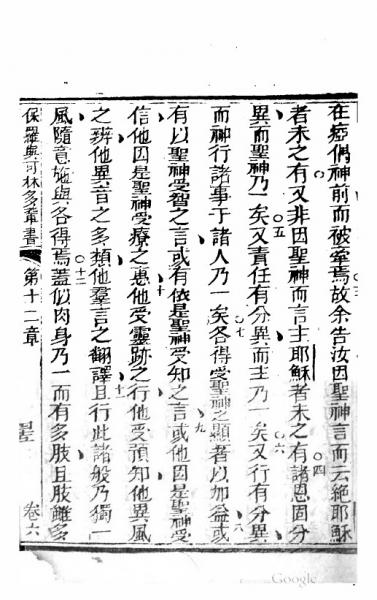 在瘂偶神前而被牽焉故余告汝因聖神言而云絕耶穌
者未之有又非因聖神而言主耶穌者未之有諸恩固分
異而聖神乃一矣又責任有分異而主乃一矣又行有分異
而神行諸事于諸人乃一矣各得受聖神之顯著以加益或
有以聖神受智之言或有依是聖神受知之言或他因是聖神受
信他因是聖神受療之惠他受靈跡之行他受預知他異風
之辨他異音之多類他羣言之翻譯且行此諸般乃獨一
風隨意施與各得焉蓋似肉身乃一而有多肢且肢雖多
保羅與可林多輩書 第十二章 卷六
四
五
六
七
八
九
十
十一
十二
Google